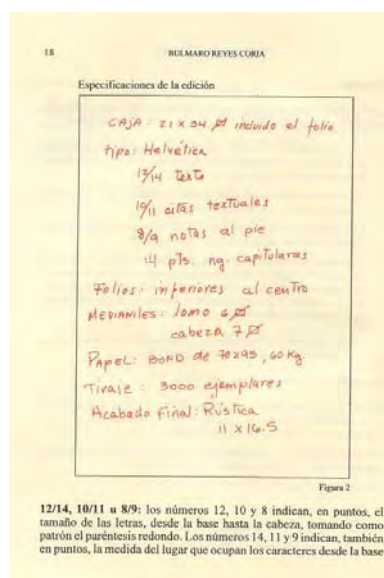 18
BULMARO REYES CORIA
Especificaciones de la edición
CAJA: 21 x 34 incluido el folio
tipo: Helvética
12/14 texto
10/11 citas textuales
8/9 notas al pie
14 pts. ng. capitulares
Folios: inferiores al centro
MEDIANILES: lomo 6
cabeza 7
PAPEL: BOND de 70x95, 60 Kg.
Tiraje: 3000 ejemplares
Acabado Final: Rústica
11 x 16.5
Figura 2
12/14, 10/11 u 8/9: los números 12, 10 y 8 indican, en puntos, el
tamaño de las letras, desde la base hasta la cabeza, tomando como
patrón el paréntesis redondo. Los números 14, 11 y 9 indican, también
en puntos, la medida del lugar que ocupan los caracteres desde la base